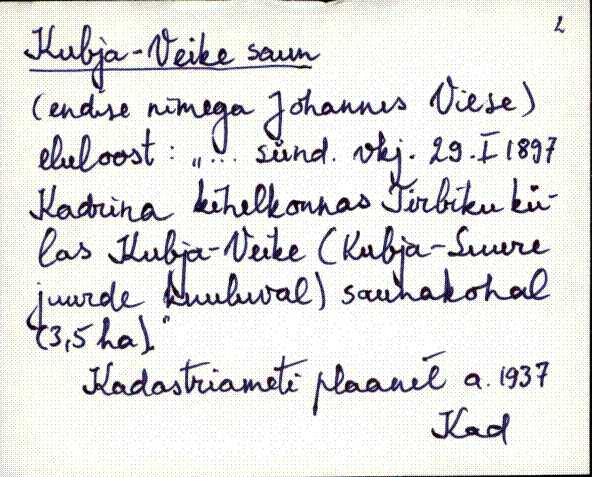 2
Kubja-Veike saun
(endise nimega Johannes Viese)
eluloost: „... sünd. vkj. 29.I 1897
Kadrina kihelkonnas Tirbiku kü-
las Kubja-Veike (Kubja-Suure
juurde kuuluval) saunakohal
(3,5 ha)."
Kadastriameti plaanil a. 1937
Kad